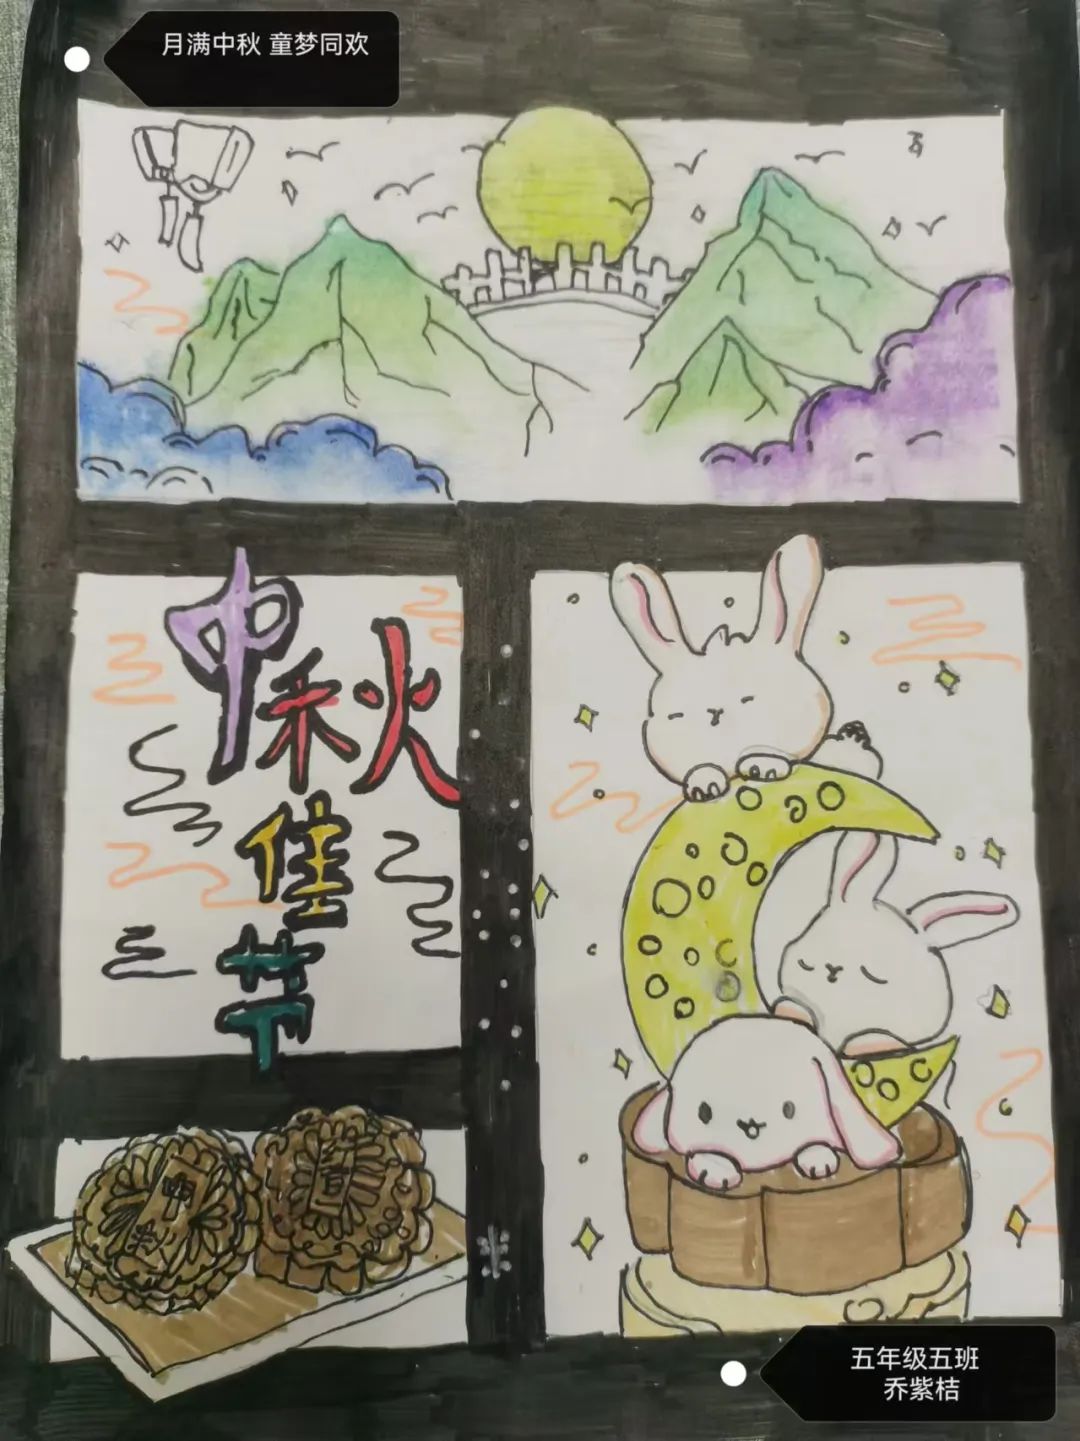 月满中秋 童梦同欢
中秋
佳
节
中
秋
五年级五班
乔紫桔